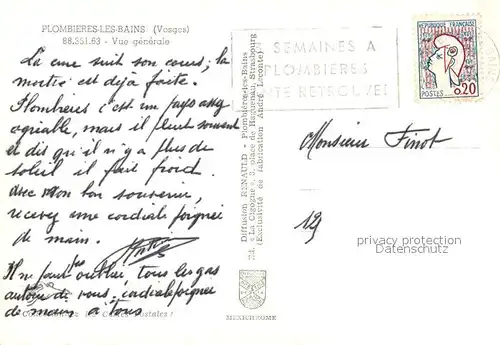 PLOMBIERES-LES-BAINS (Vosges)
88.351.63 - Vue générale
La cure suit son cours, la
moitié est déjà faite.
Plombières c'est un pays assez
agréable, mais il pleut souvent
et dis qu'il n'y a plus de
soleil il fait froid.
Avec mon bon souvenir,
recevez une cordiale poignée
de main.
Il ne faut oublier tous les gas
autour de vous, cordiale poignée
de mains à tous
Diffusion RENAULD - Plombières-les-Bains
"La Cigogne", 3, place de Haguenau, Strasbourg
(Exclusivité de fabrication André Leconte)
MEXICHROME
3 SEMAINES A
PLOMBIÈRES
SANTÉ RETROUVÉE
REPUBLIQUE FRANÇAISE
POSTES
0,20
Monsieur Finot
12
picture protection
www.delcampe.net